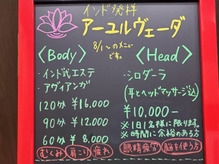 インド発祥
アーユルヴェーダ
8/1〜のメニュー
です。
<Body>
・インド式エステ
・アヴィアンガ
120分 ¥16,000
90分 ¥12,000
60分 ¥8,000
むくみ 肩こり 疲れ
<Head>
・シロダーラ
(耳とヘッドマッサージ込)
¥10,000−
※1日1名様に限ります。
※時間に余裕のある方
眼精疲労 脳を使う方